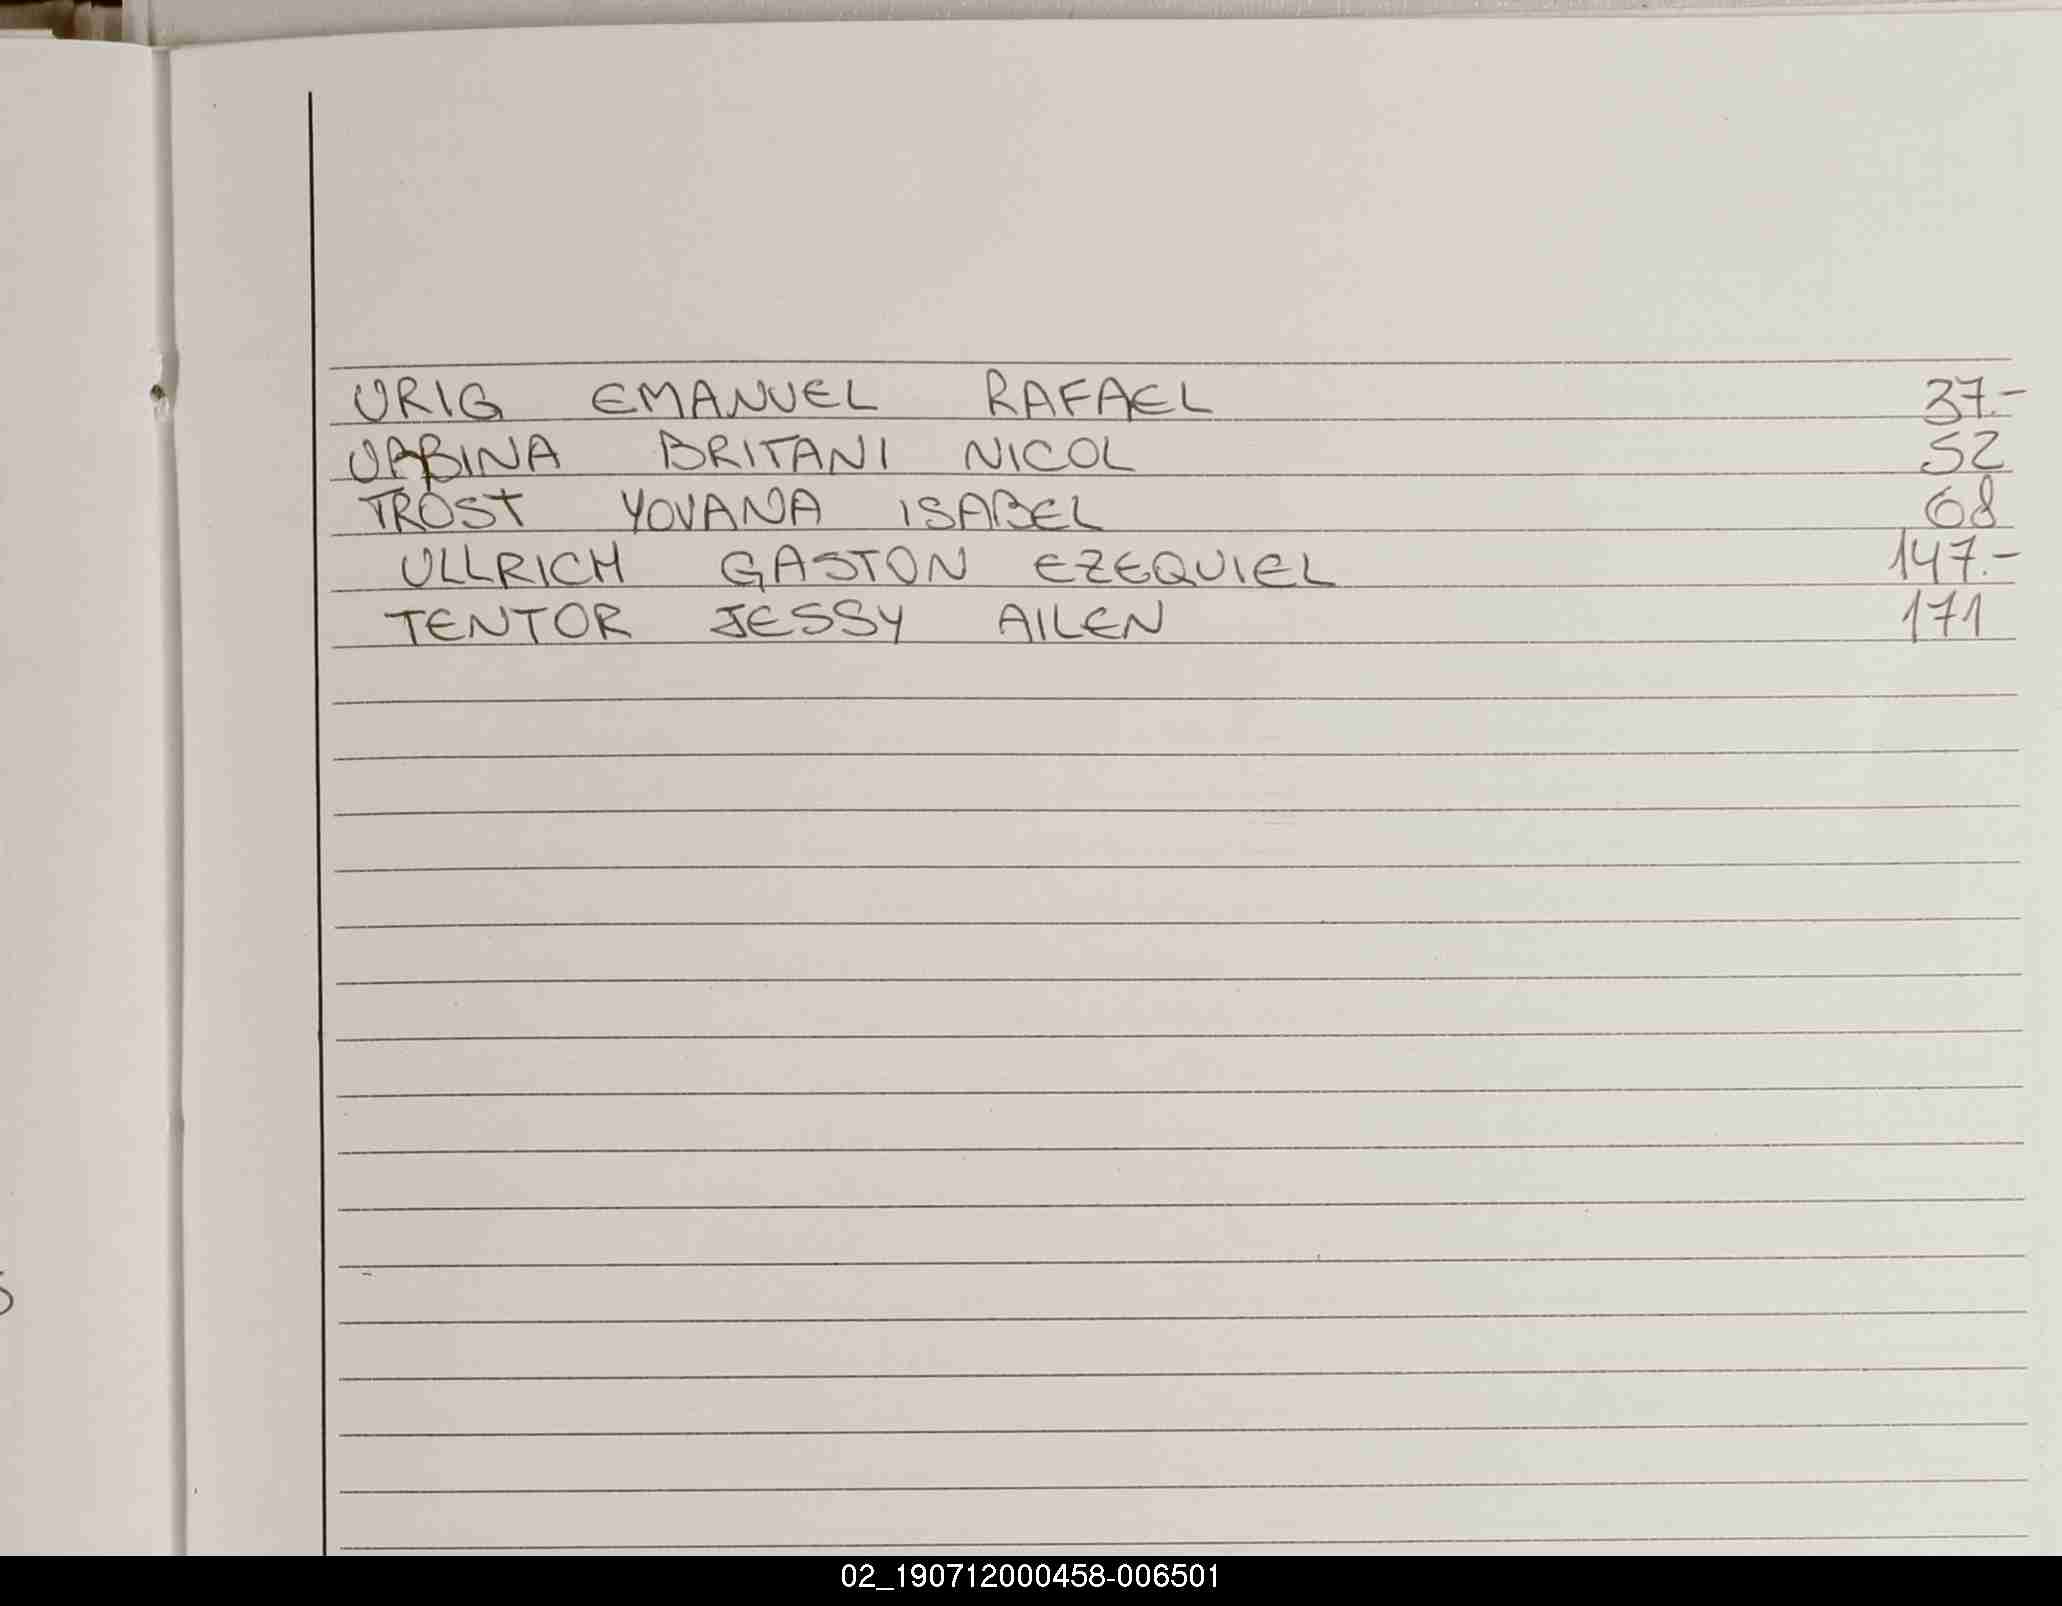 URIG EMANUEL RAFAEL 37.-
URBINA BRITANI NICOL 52
TROST YOVANA ISABEL 68
ULLRICH GASTON EZEQUIEL 147.-
TENTOR JESSY AILEN 171
02_190712000458-006501